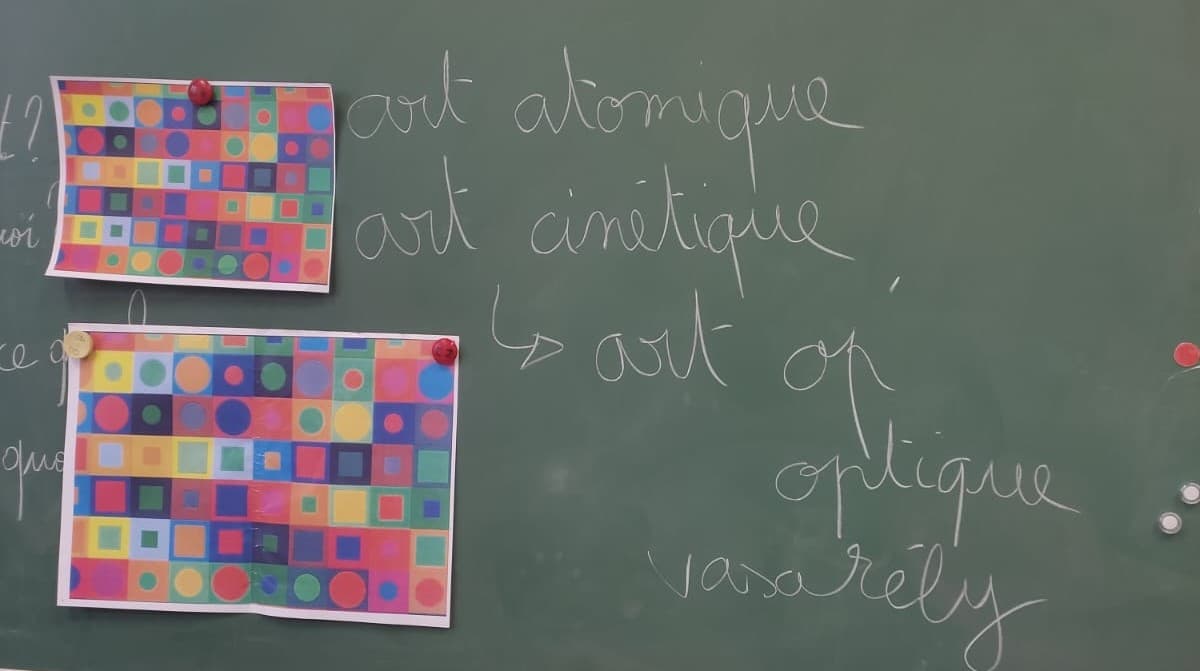 art atomique
art cinétique
↳ art op
optique
vasarély